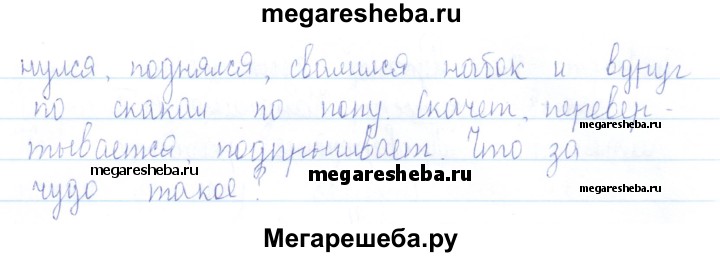 megaresheba.ru
нулся, поднялся, свалился набок и вдруг
по скакал по полу. Скачет, перевен-
megaresheba.ru
тывается, подпрыгивает. Что за
megaresheba.ru
чудо такое?
megaresheba.ru
Мегарешеба.ру